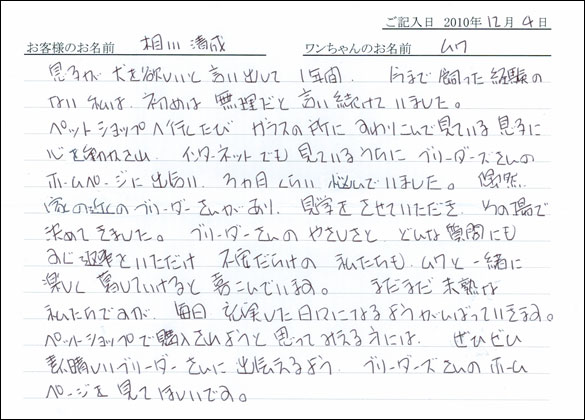 ご記入日 2010年12月4日
お客様のお名前 相川 清成 ワンちゃんのお名前 ムワ
息子が犬を欲しいと言い出して1年間、今まで飼った経験の
ない私は、初めは無理だと言い続けていました。
ペットショップへ行くたび ガラスの所にすわりこんで見ている息子に
心を動かされ、インターネットでも見ているうちにブリーダーズさんの
ホームページに出会い、3カ月くらい悩んでいました。偶然
家の近くのブリーダーさんがあり、見学をさせていただき、その場で
決めてきました。ブリーダーさんのやさしさと、どんな質問にも
すぐ返事といただけ 不安だらけの私たちも、ムワと一緒に
楽しく暮していけると喜こんでいます。まだまだ未熟な
私たちですが、毎日充実した日々になるようがんばっていきます。
ペットショップで購入されようと思ってみえる方には、ぜひぜひ
素晴しいブリーダーさんに出会えるよう、ブリーダーズさんのホーム
ページを見てほしいです。